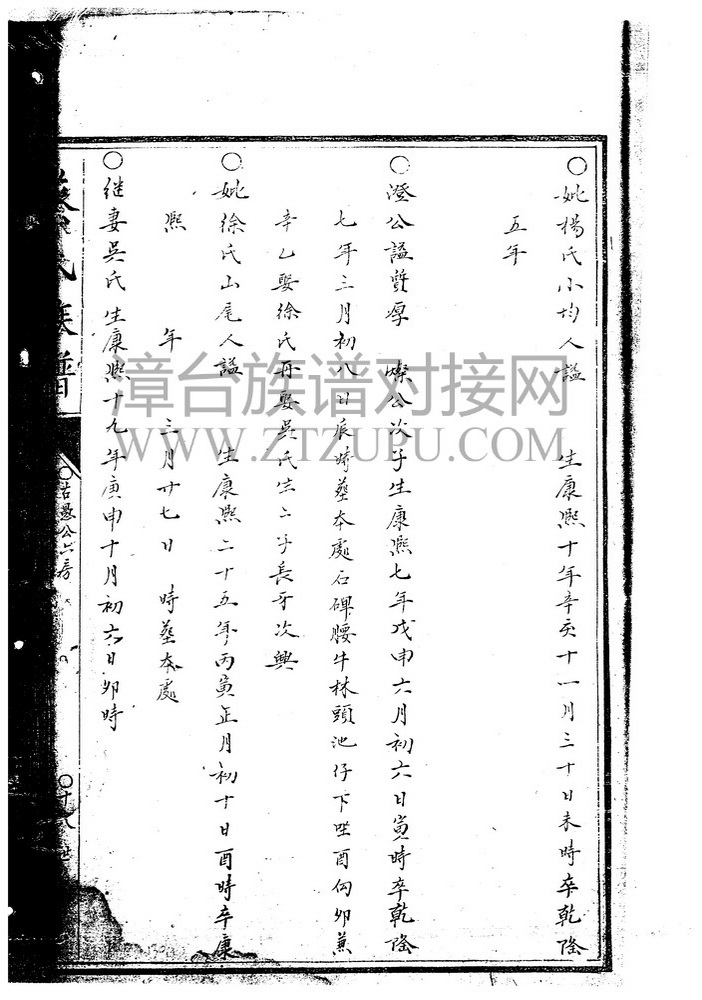 〇妣楊氏小均人謚 生康熙十年辛亥十一月三十日未時卒乾隆
五年
〇澄公謚質厚 燦公次子生康熙七年戊申六月初六日寅時卒乾隆
七年三月初八日辰時塟本處石碑腰牛林頭池仔下坐酉向卯兼
辛乙娶徐氏再娶吳氏生二子長牙次興
〇妣徐氏山尾人謚 生康熙二十五年丙寅正月初十日酉時卒康
熙 年 三月廿七日 時塟本處
〇继妻吳氏生康熙十九年庚申十月初六日卯時
氏族譜
〇古愚公六房
〇十八世
漳台族谱对接网
WWW.ZTZUPU.COM